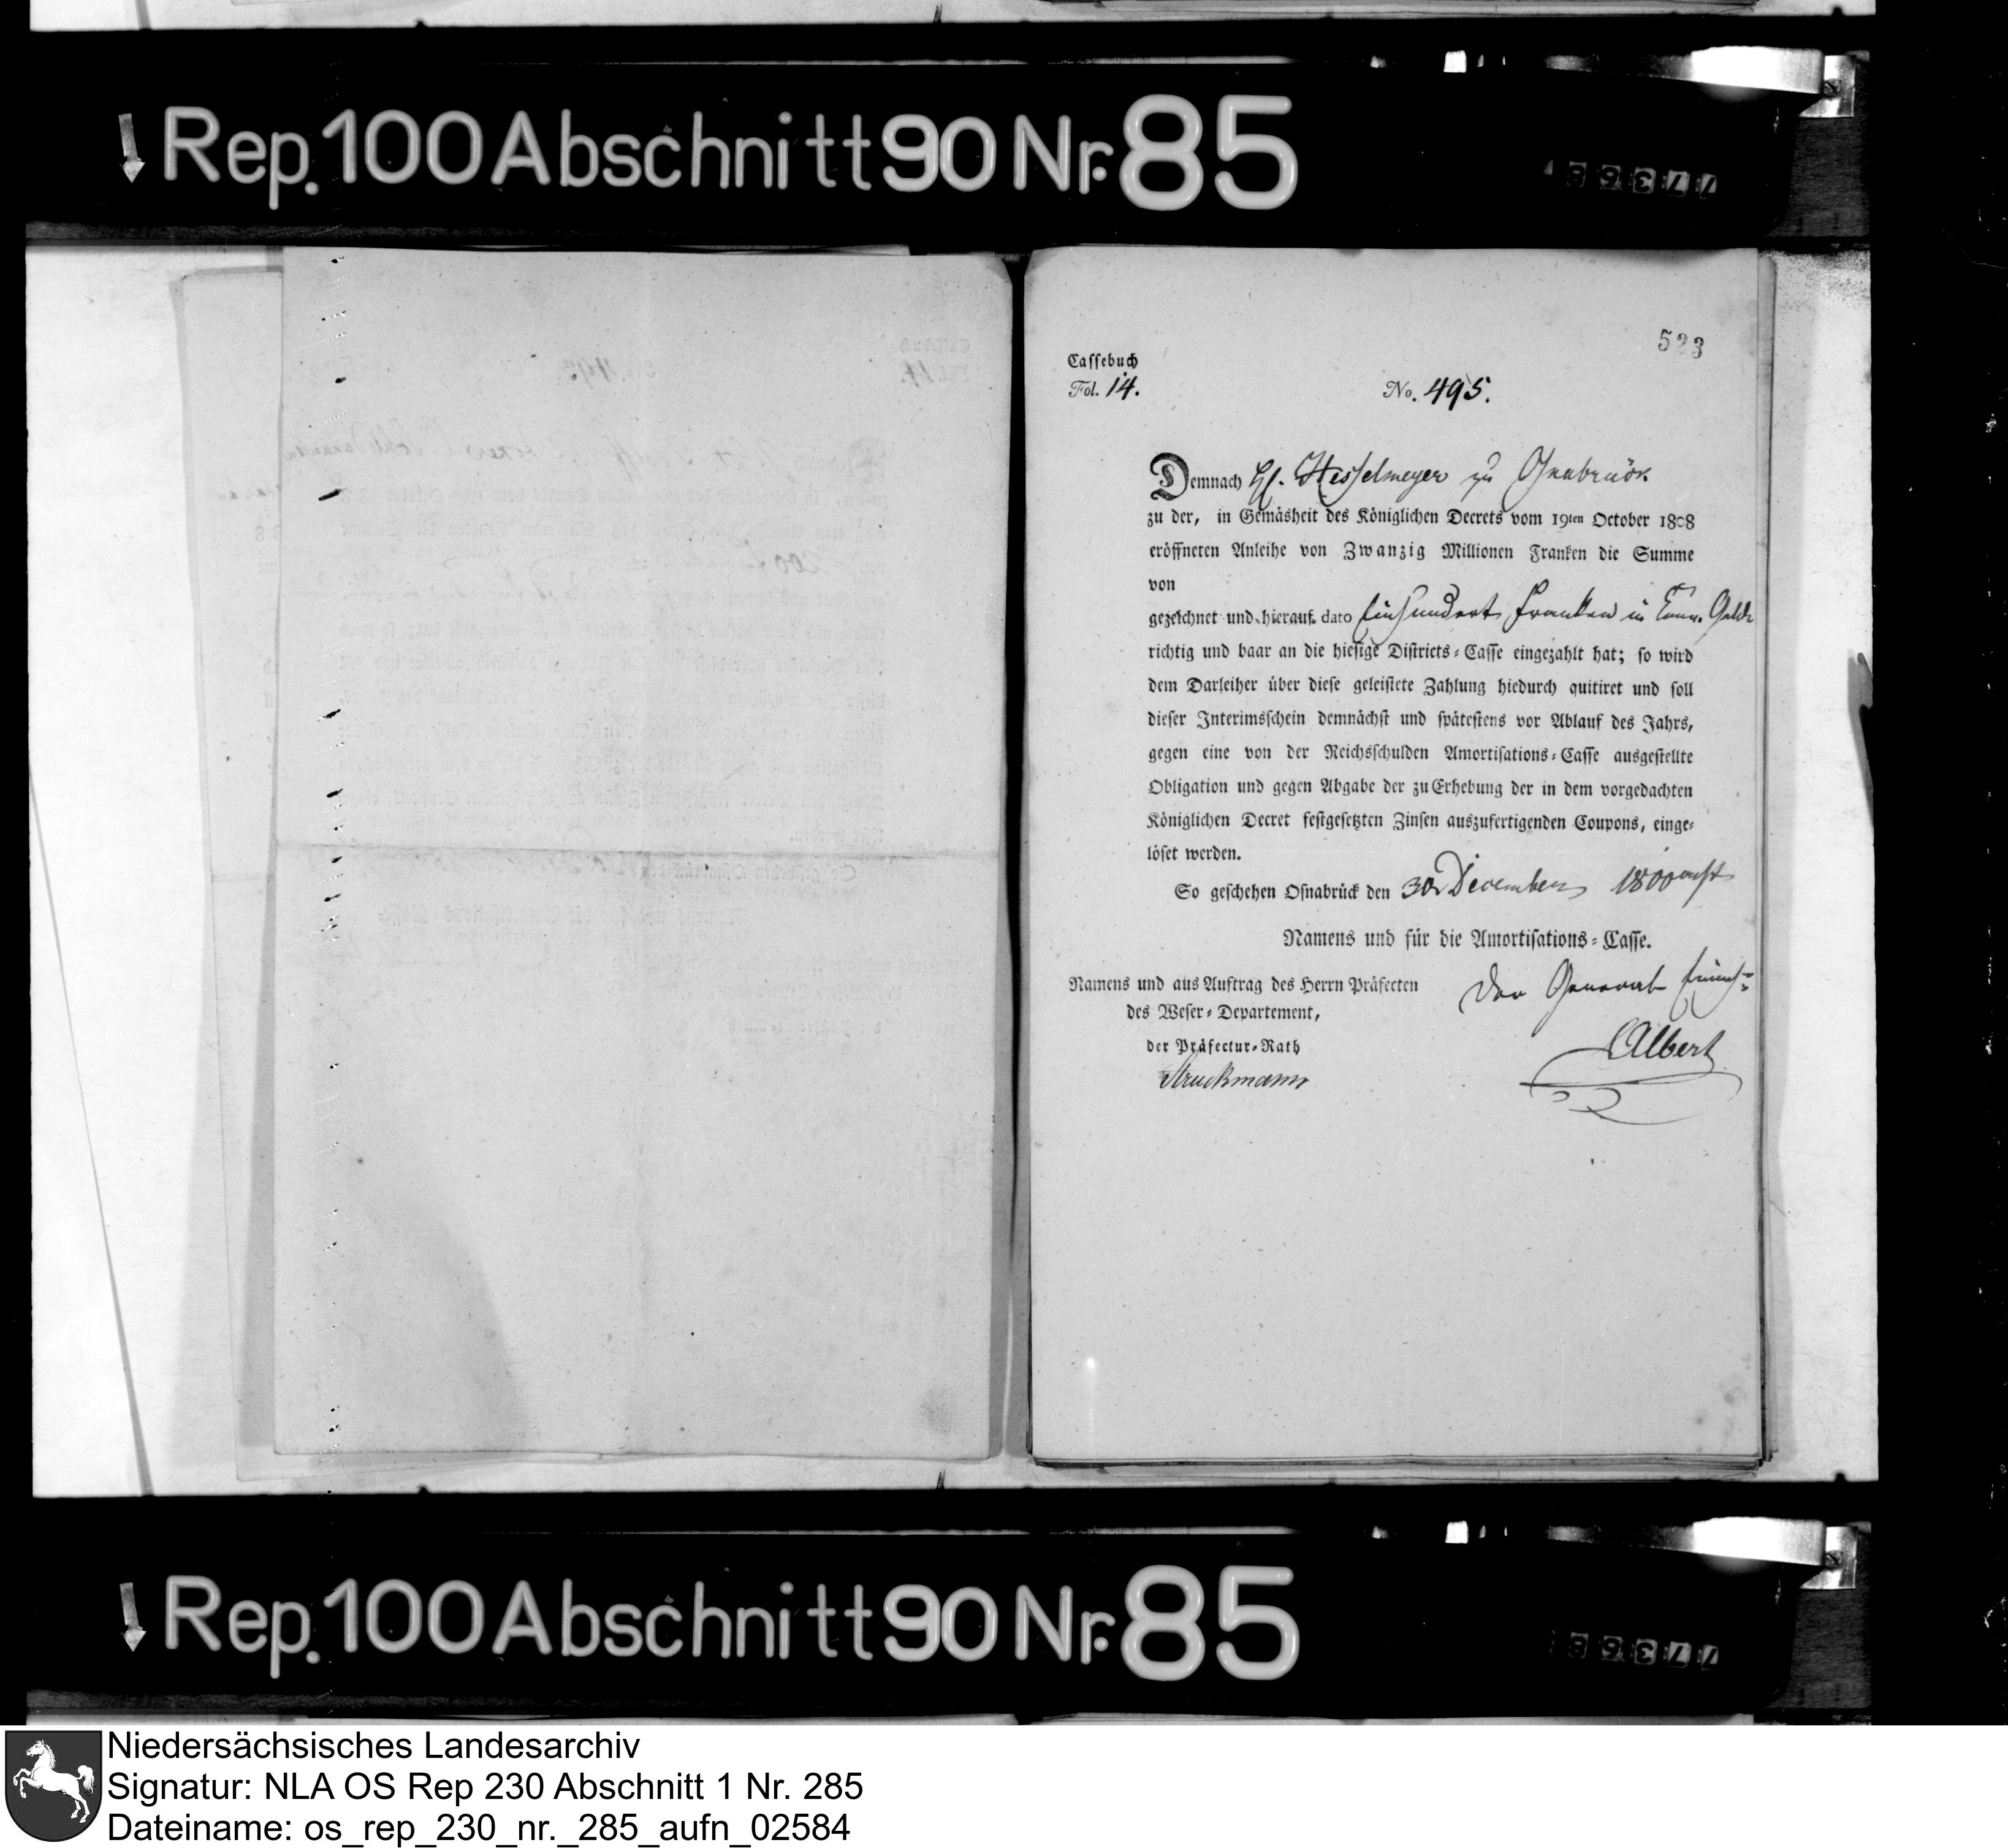 Rep. 100 Abschnitt 90 Nr. 85
77368
523
Cassebuch
Fol. 14.
No. 495.
Demnach H. Hesselmeyer zu Osnabrück
zu der, in Gemäsheit des Königlichen Decrets vom 19ten October 1808
eröffneten Anleihe von Zwanzig Millionen Franken die Summe
von
gezeichnet und hierauf dato Einhundert Franken in Conv. Gelde
richtig und baar an die hiesige Districts-Casse eingezahlt hat; so wird
dem Darleiher über diese geleistete Zahlung hiedurch quitiret und soll
dieser Interimsschein demnächst und spätestens vor Ablauf des Jahrs,
gegen eine von der Reichsschulden Amortisations-Casse ausgestellte
Obligation und gegen Abgabe der zu Erhebung der in dem vorgedachten
Königlichen Decret festgesetzten Zinsen auszufertigenden Coupons, einge-
löset werden.
So geschehen Osnabrück den 30 December 1800 acht
Namens und für die Amortisations-Casse.
Namens und aus Auftrag des Herrn Präfecten
des Weser-Departement,
der Präfectur-Rath
Struckmann
Der General
Albert
Rep. 100 Abschnitt 90 Nr. 85
77368
Niedersächsisches Landesarchiv
Signatur: NLA OS Rep 230 Abschnitt 1 Nr. 285
Dateiname: os_rep_230_nr._285_aufn_02584